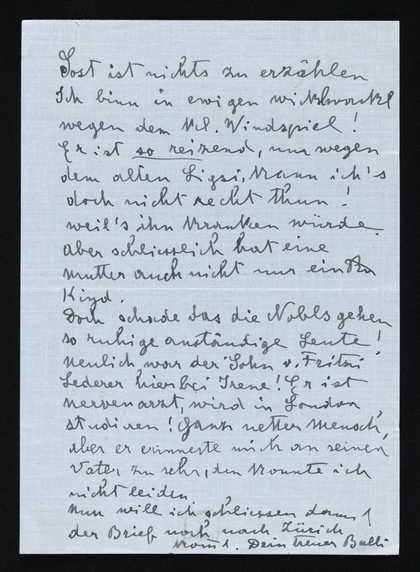 Sost ist nichts zu erzählen
Ich binn in ewigen wickelwackel
wegen dem kl. Windspiel!
Er ist so reizend, nur wegen
dem alten Gigsi, kann ich's
doch nicht recht thun!
weil's ihn kranken würde.
Aber schliesslich hat eine
mutter auch nicht nur ein
Kind.
Doch schade das die Nobls gehen
so ruhige anständige Leute!
neulich war der Sohn v. Fritzi
Lederer hier bei Irene! Er ist
nervenarzt, wird in London
studiren! Ganz netter mensch,
aber er erinnerte mich an seinen
Vater zu sehr, den konnte ich
nicht leiden.
nun will ich schliessen damit
der Brief noch nach Zürich
kommt. Dein treuer